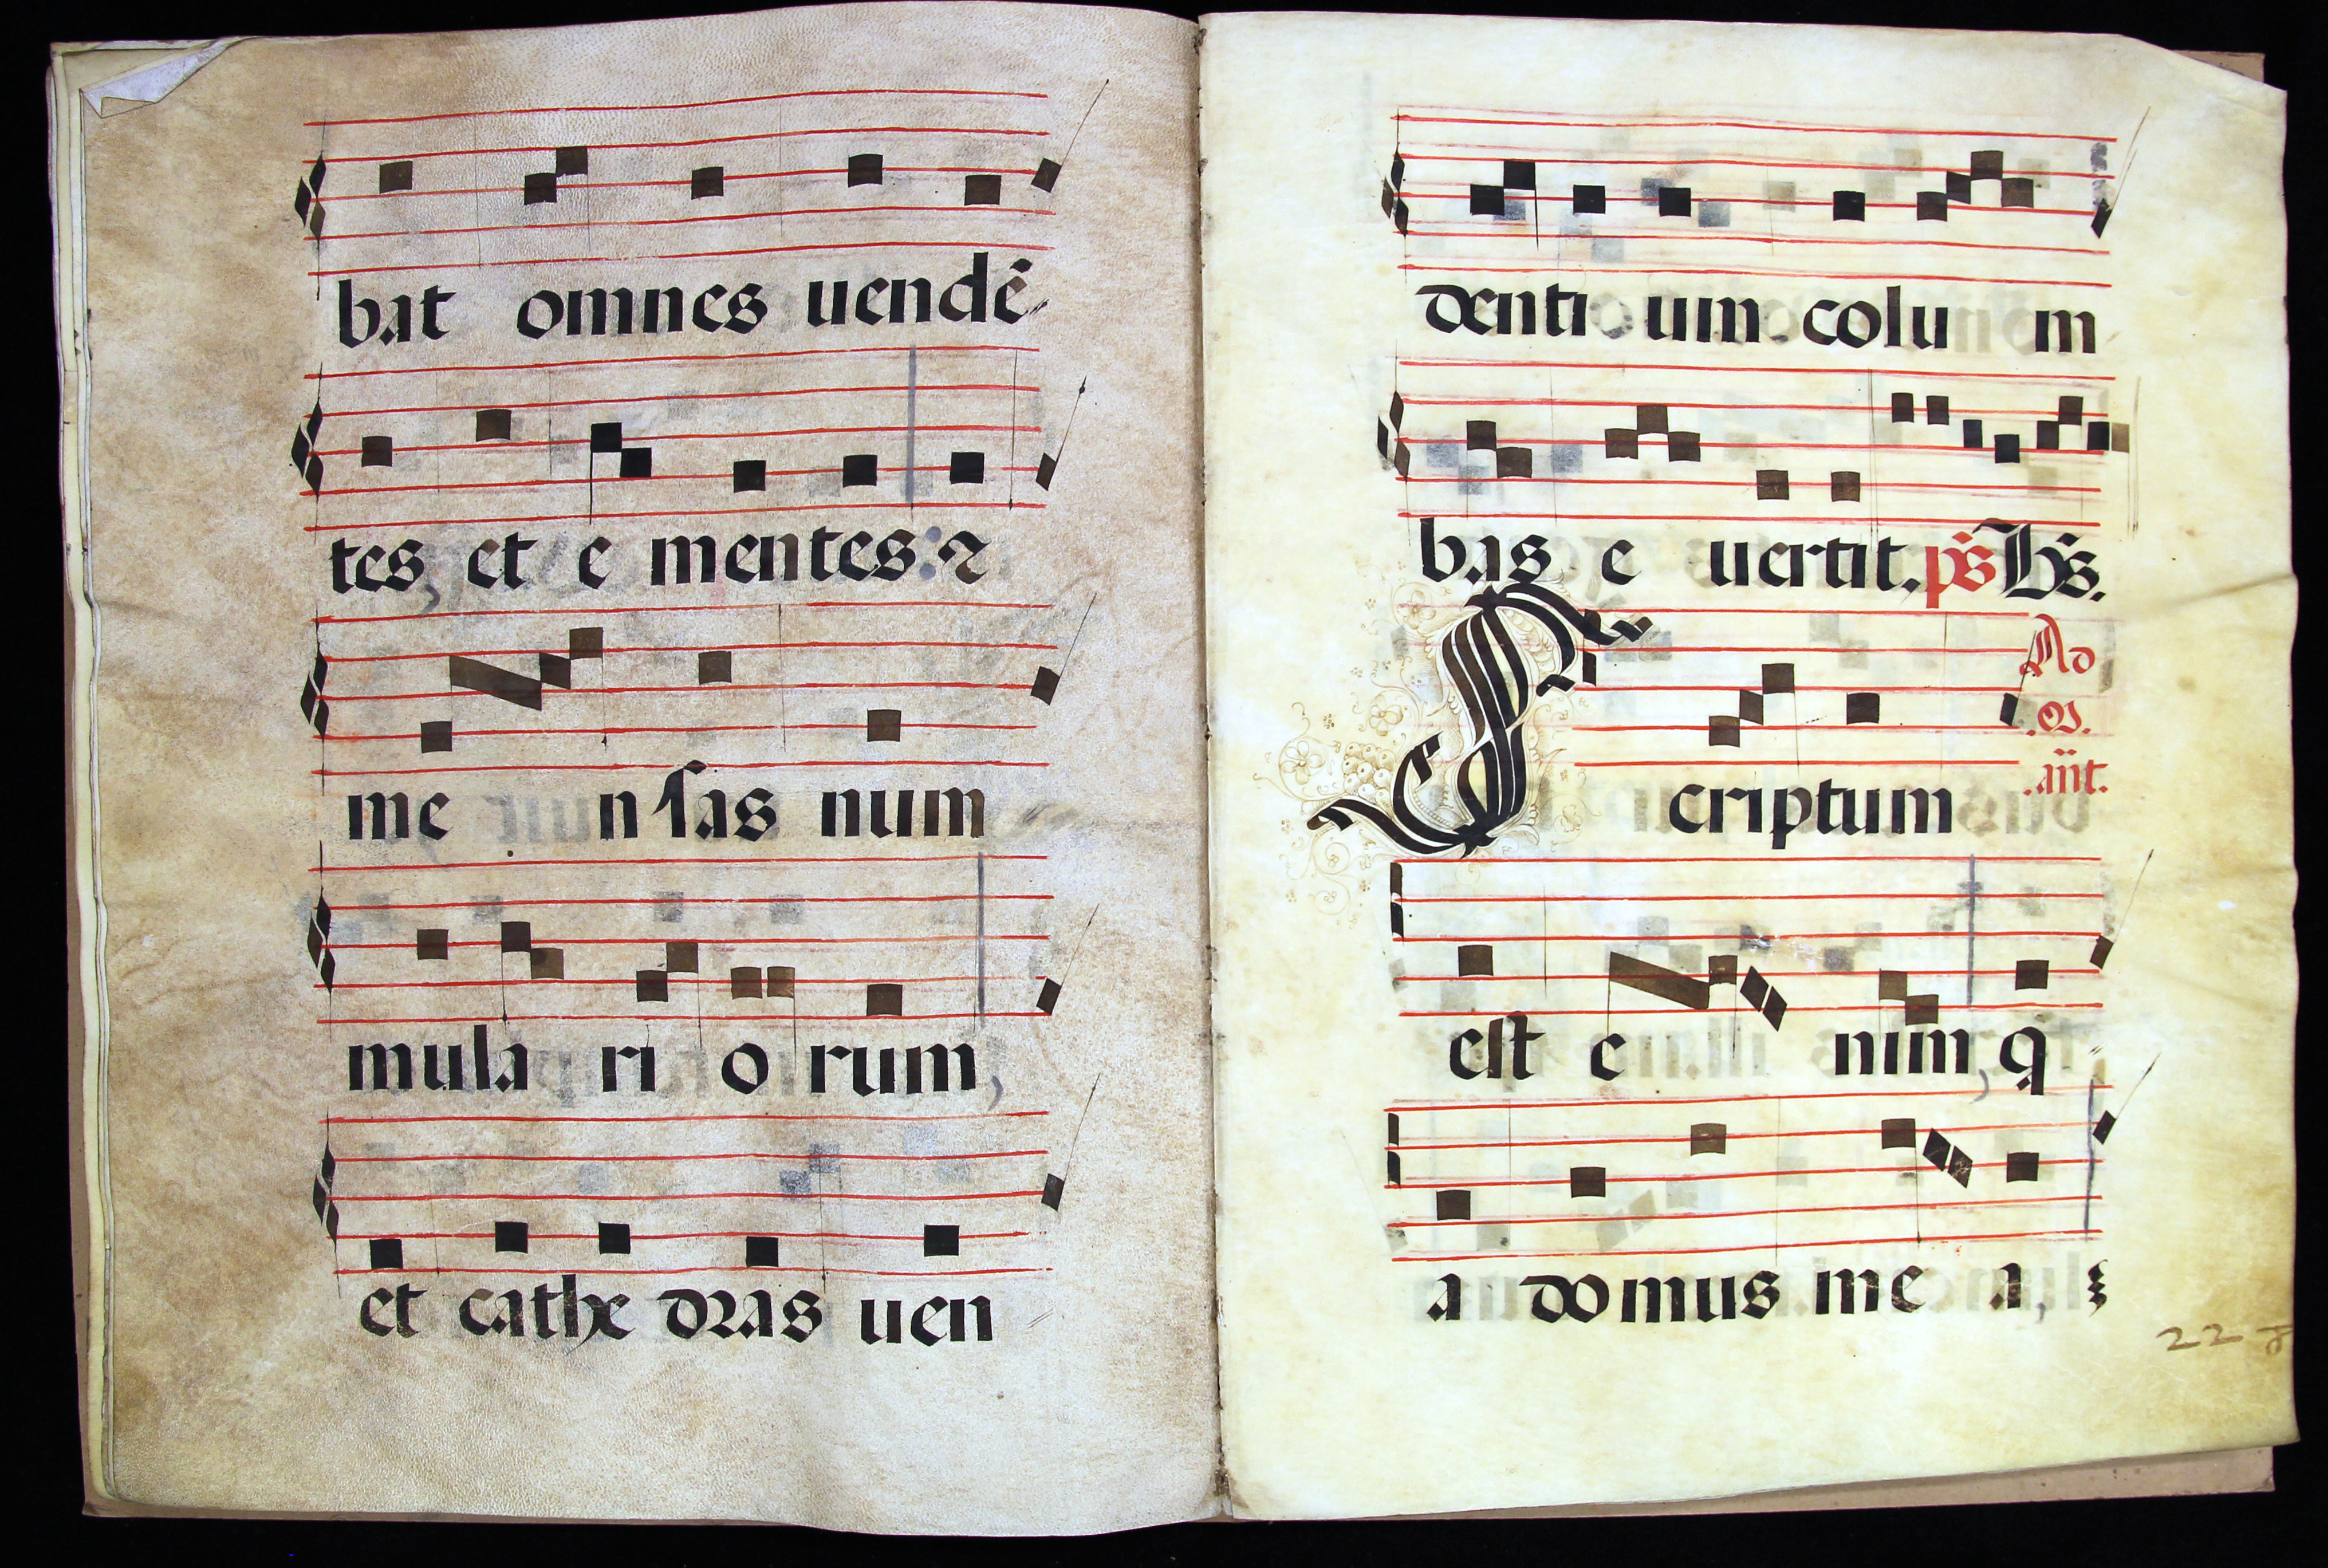 bat omnes uendẽ
tes, et e mentes: ⁊
me n sas num
mula ri o rum,
et cathe dras uen
denti um colu m
bas e uertit. ps̃ Hỹs.
Ad
.M.
.añt.
Scriptum
est e nim, q
a domus me a,
22